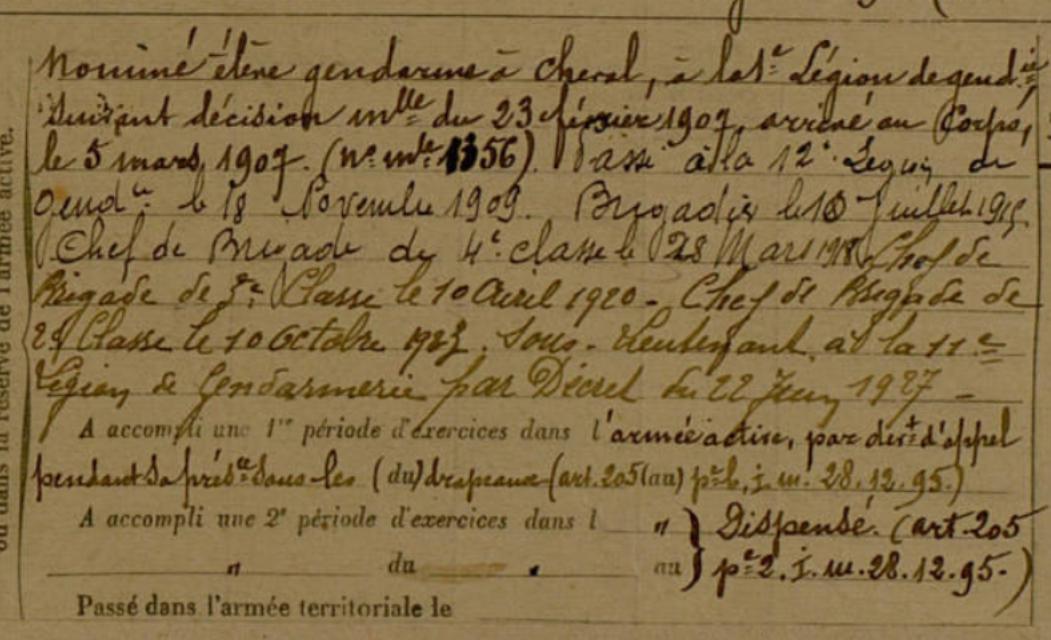 Nommé élève gendarme à cheval, à la 1e Légion de gendie
suivant décision mlle du 23 février 1907, arrivé au Corps,
le 5 mars 1907. (no mle 1356). Passé à la 12e Légion de
gendie le 18 Novembre 1909. Brigadier le 10 Juillet 1915
Chef de Brigade de 4e classe le 28 Mars 1918 Chef de
Brigade de 3e Classe le 10 Avril 1920 - Chef de Brigade de
2e Classe le 10 Octobre 1923. Sous-Lieutenant à la 11e
Légion de Gendarmerie par Décret du 22 Juin 1927 -
A accompli une 1re période d'exercices dans l'armée active, par devt d'appel
pendant sa présce sous les (du) drapeaux (art. 205 (au) pe 6, j. m. 28.12.95.)
A accompli une 2e période d'exercices dans l " } Dispensé. (art. 205
" du . au } pe 2. j. m. 28.12.95.)
Passé dans l'armée territoriale le
ou dans la réserve de l'armée active.